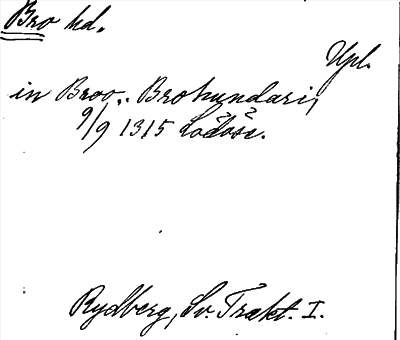 Bro hd.
Upl.
in Broo.. Brohundari,
9/9 1315 Lödöse.
Rydberg, Sv. Trakt. I.